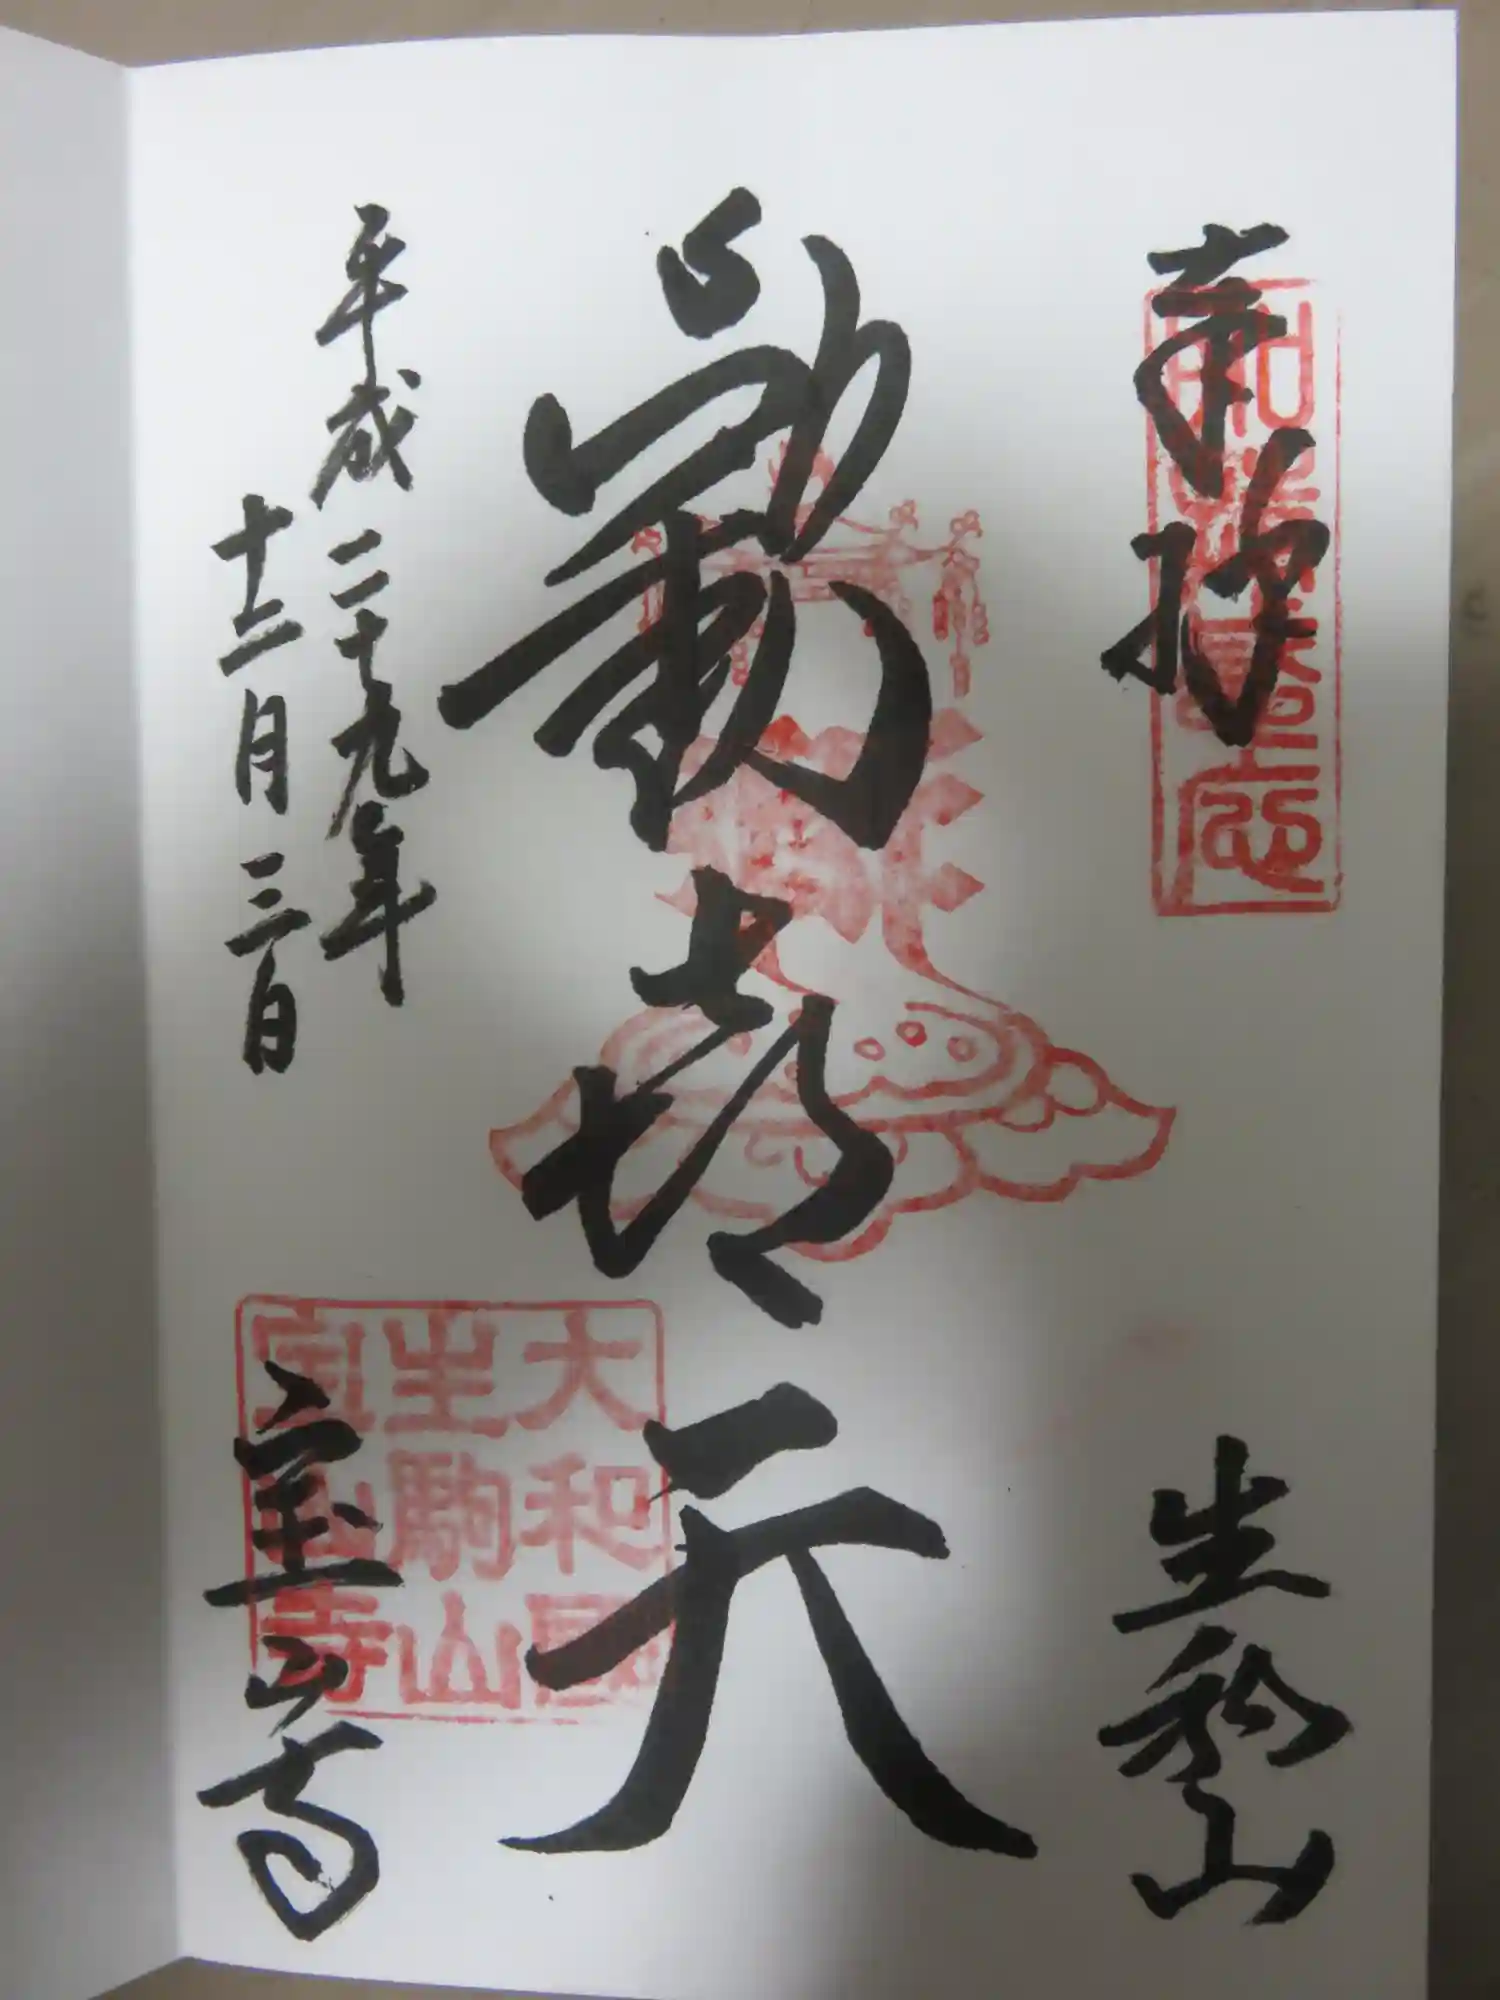 奉拝
生駒山
歓喜天
平成二十九年
十二月三日
宝山寺
大和國
生駒山
宝山寺